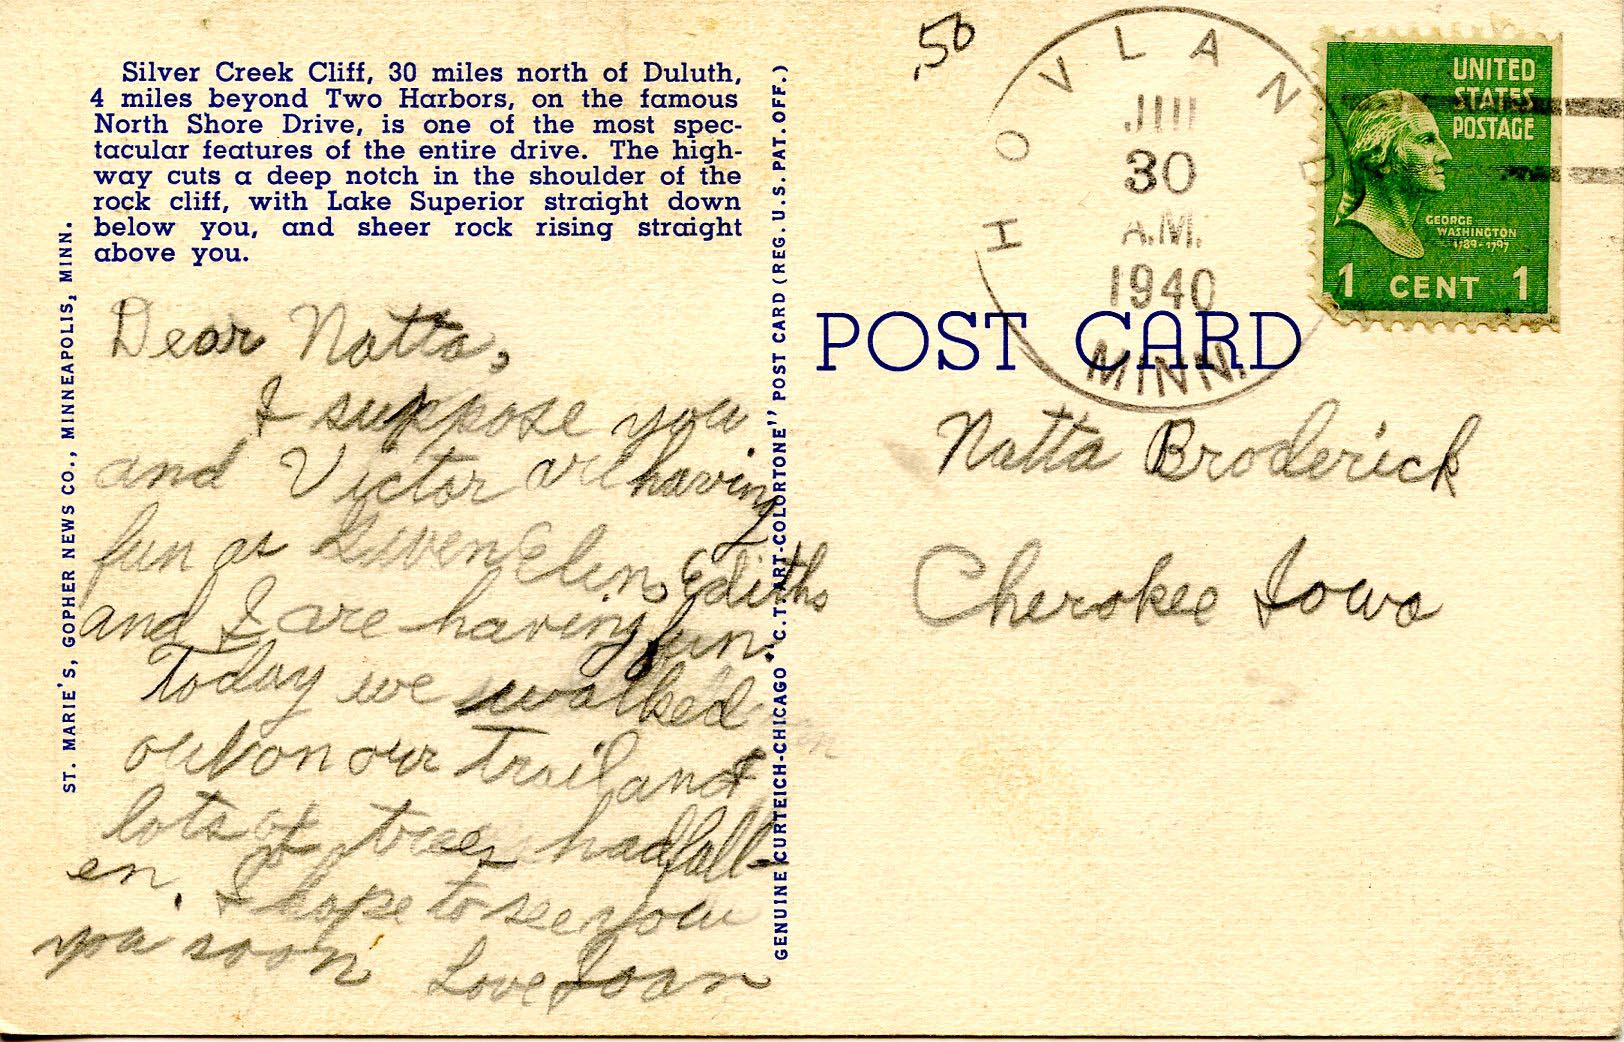 Silver Creek Cliff, 30 miles north of Duluth,
4 miles beyond Two Harbors, on the famous
North Shore Drive, is one of the most spec-
tacular features of the entire drive. The high-
way cuts a deep notch in the shoulder of the
rock cliff, with Lake Superior straight down
below you, and sheer rock rising straight
above you.
ST. MARIE'S, GOPHER NEWS CO., MINNEAPOLIS, MINN.
Dear Natta,
I suppose you
and Victor are having
fun as Elen, Ediths
and I are having fun.
Today we walked
out on our trail and
lots of trees had fall-
en. I hope to see you
you soon
Love Joan
GENUINE CURTEICH-CHICAGO "C.T. ART-COLORTONE" POST CARD (REG. U.S. PAT. OFF.)
.50
HOVLAND
30
A.M.
1940
MINN.
UNITED
STATES
POSTAGE
GEORGE
WASHINGTON
1789-1797
1 CENT 1
POST CARD
Natta Broderick
Cherokee Iowa